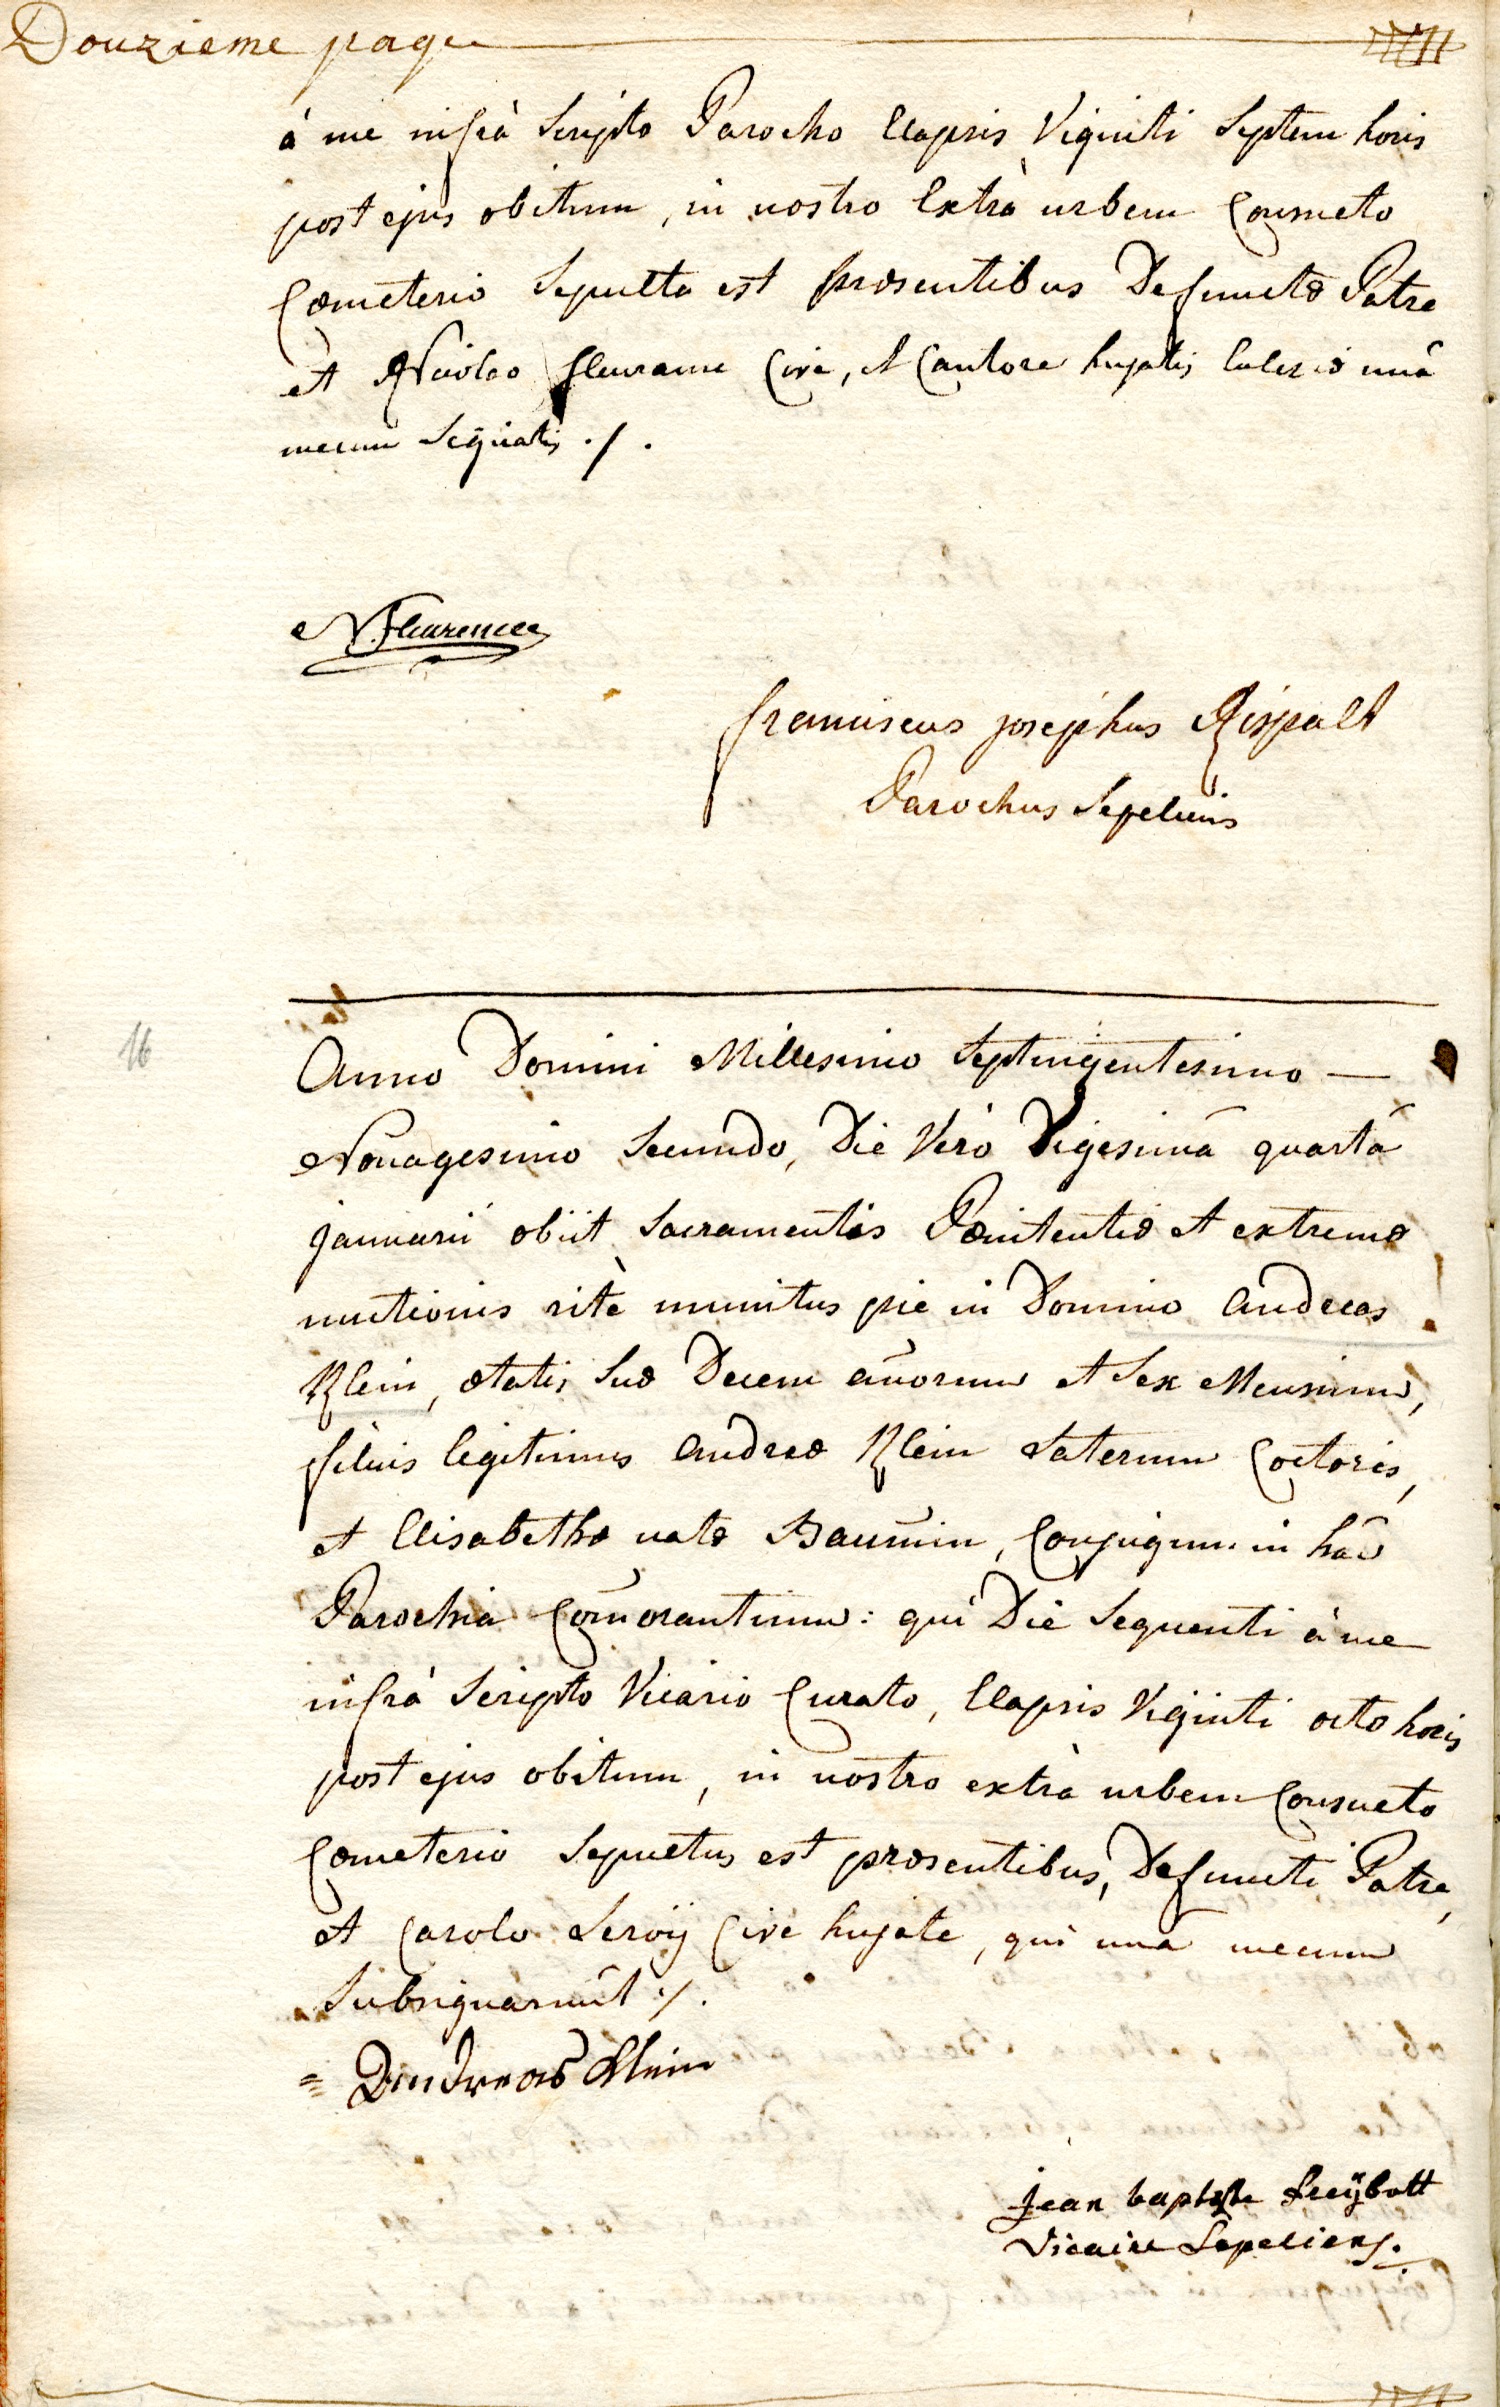 Douzieme page
à me infrà Scripto Parocho Elapsis Viginti Septem horis
post ejus obitum, in nostro Extrà urbem Consueto
Cœmeterio Sepulta est præsentibus Defunctæ Patre
et Nicolao fleurance Cive, et Cantore hujatis Ecclesiæ unâ
mecum Signatis ./.
N. fleurence
franciscus josephus Rispalt
Parochus Sepeliens
16
Anno Domini Millesimo Septingentesimo —
Nonagesimo Secundo, Die Verò Vigesimâ quartâ
januarii obiit Sacramentis Pœnitentiæ et extremæ
unctionis ritè munitus pie in Domino Andreas
Klein, ætatis Suæ Decem añorum et Sex Mensium,
filius legitimus Andreæ Klein Laterum Coctoris,
et Elisabethæ natæ Baum̃in, Conjugum in hâc
Parochia Com̃orantium: qui Die Sequenti à me
infrà Scripto Vicario Curato, Elapsis Viginti octo horis
post ejus obitum, in nostro extrà urbem Consueto
Cœmeterio Sepultus est præsentibus, Defuncti Patre,
et Carolo Leroÿ Cive hujate, qui unâ mecum
Subsignarunt ./.
= Andreas Klein
jean baptiste freÿbott
Vicaire Sepeliens.